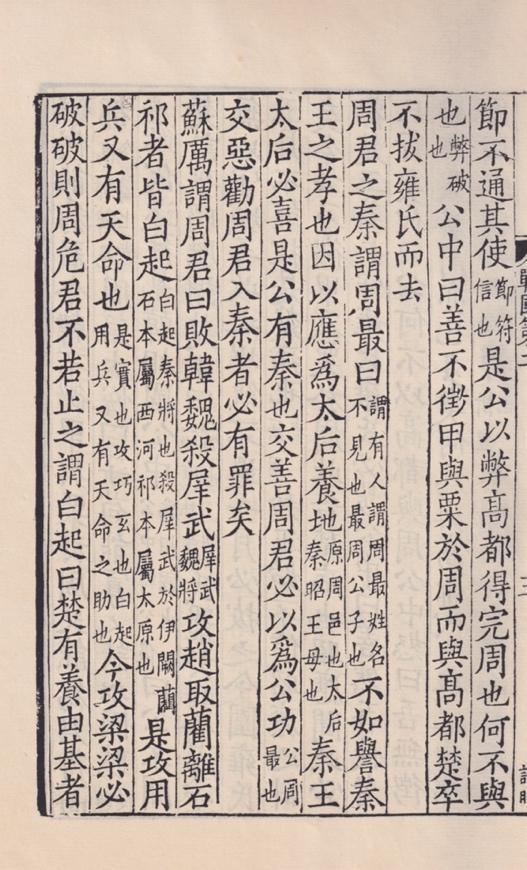 節不通其使節符信也是公以弊高都得完周也何不與
也弊破也公中曰善不徵甲與粟於周而與高都楚卒
不拔雍氏而去
周君之秦謂周最曰謂有人謂周最姓名不見也最周公子也不如譽秦
王之孝也因以應爲太后養地原周邑也太后秦昭王母也秦王
太后必喜是公有秦也交善周君必以爲公功公周最也
交惡勸周君入秦者必有罪矣
蘇厲謂周君曰敗韓魏殺犀武犀武魏將攻趙取藺離石
祁者皆白起白起秦將也殺犀武於伊闕藺石本屬西河祁本屬太原也是攻用
兵又有天命也是實也攻巧玄也白起用兵又有天命之助也今攻梁梁必
破破則周危君不若止之謂白起曰楚有養由基者